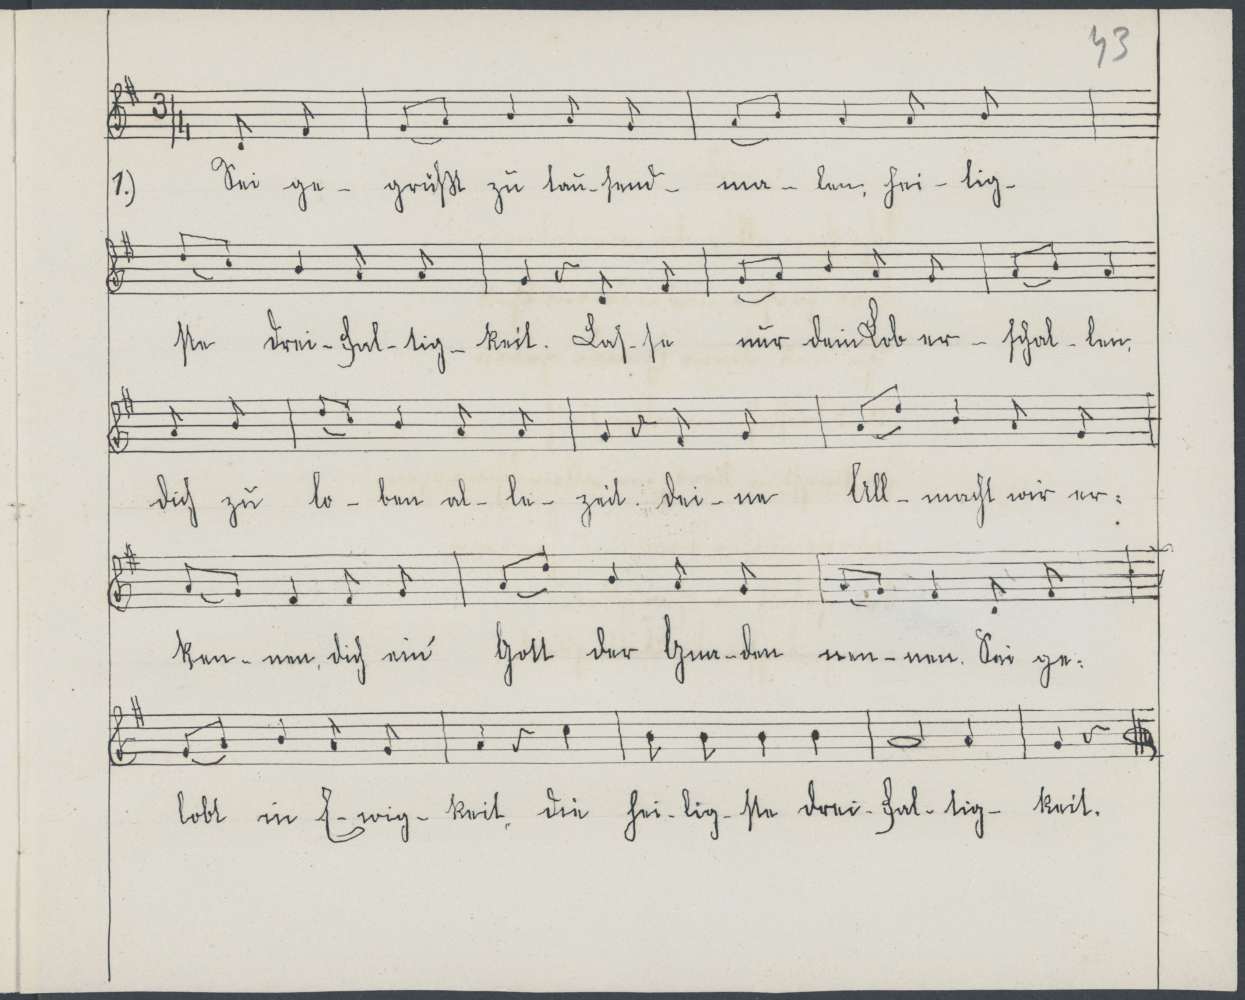 43
3/4
1.) Sei ge- grüßt zu tau-send- ma- len, hei- lig-
ste drei-fal-tig- keit. Las-se nur dein Lob er- schal-len,
dich zu lo- ben al-le- zeit. dei-ne All- macht wir er:
ken- nen, dich ein Gott der Gna-den nen-nen. Sei ge:
lobt in E-wig- keit, die hei-lig-ste drei-fal-tig- keit.